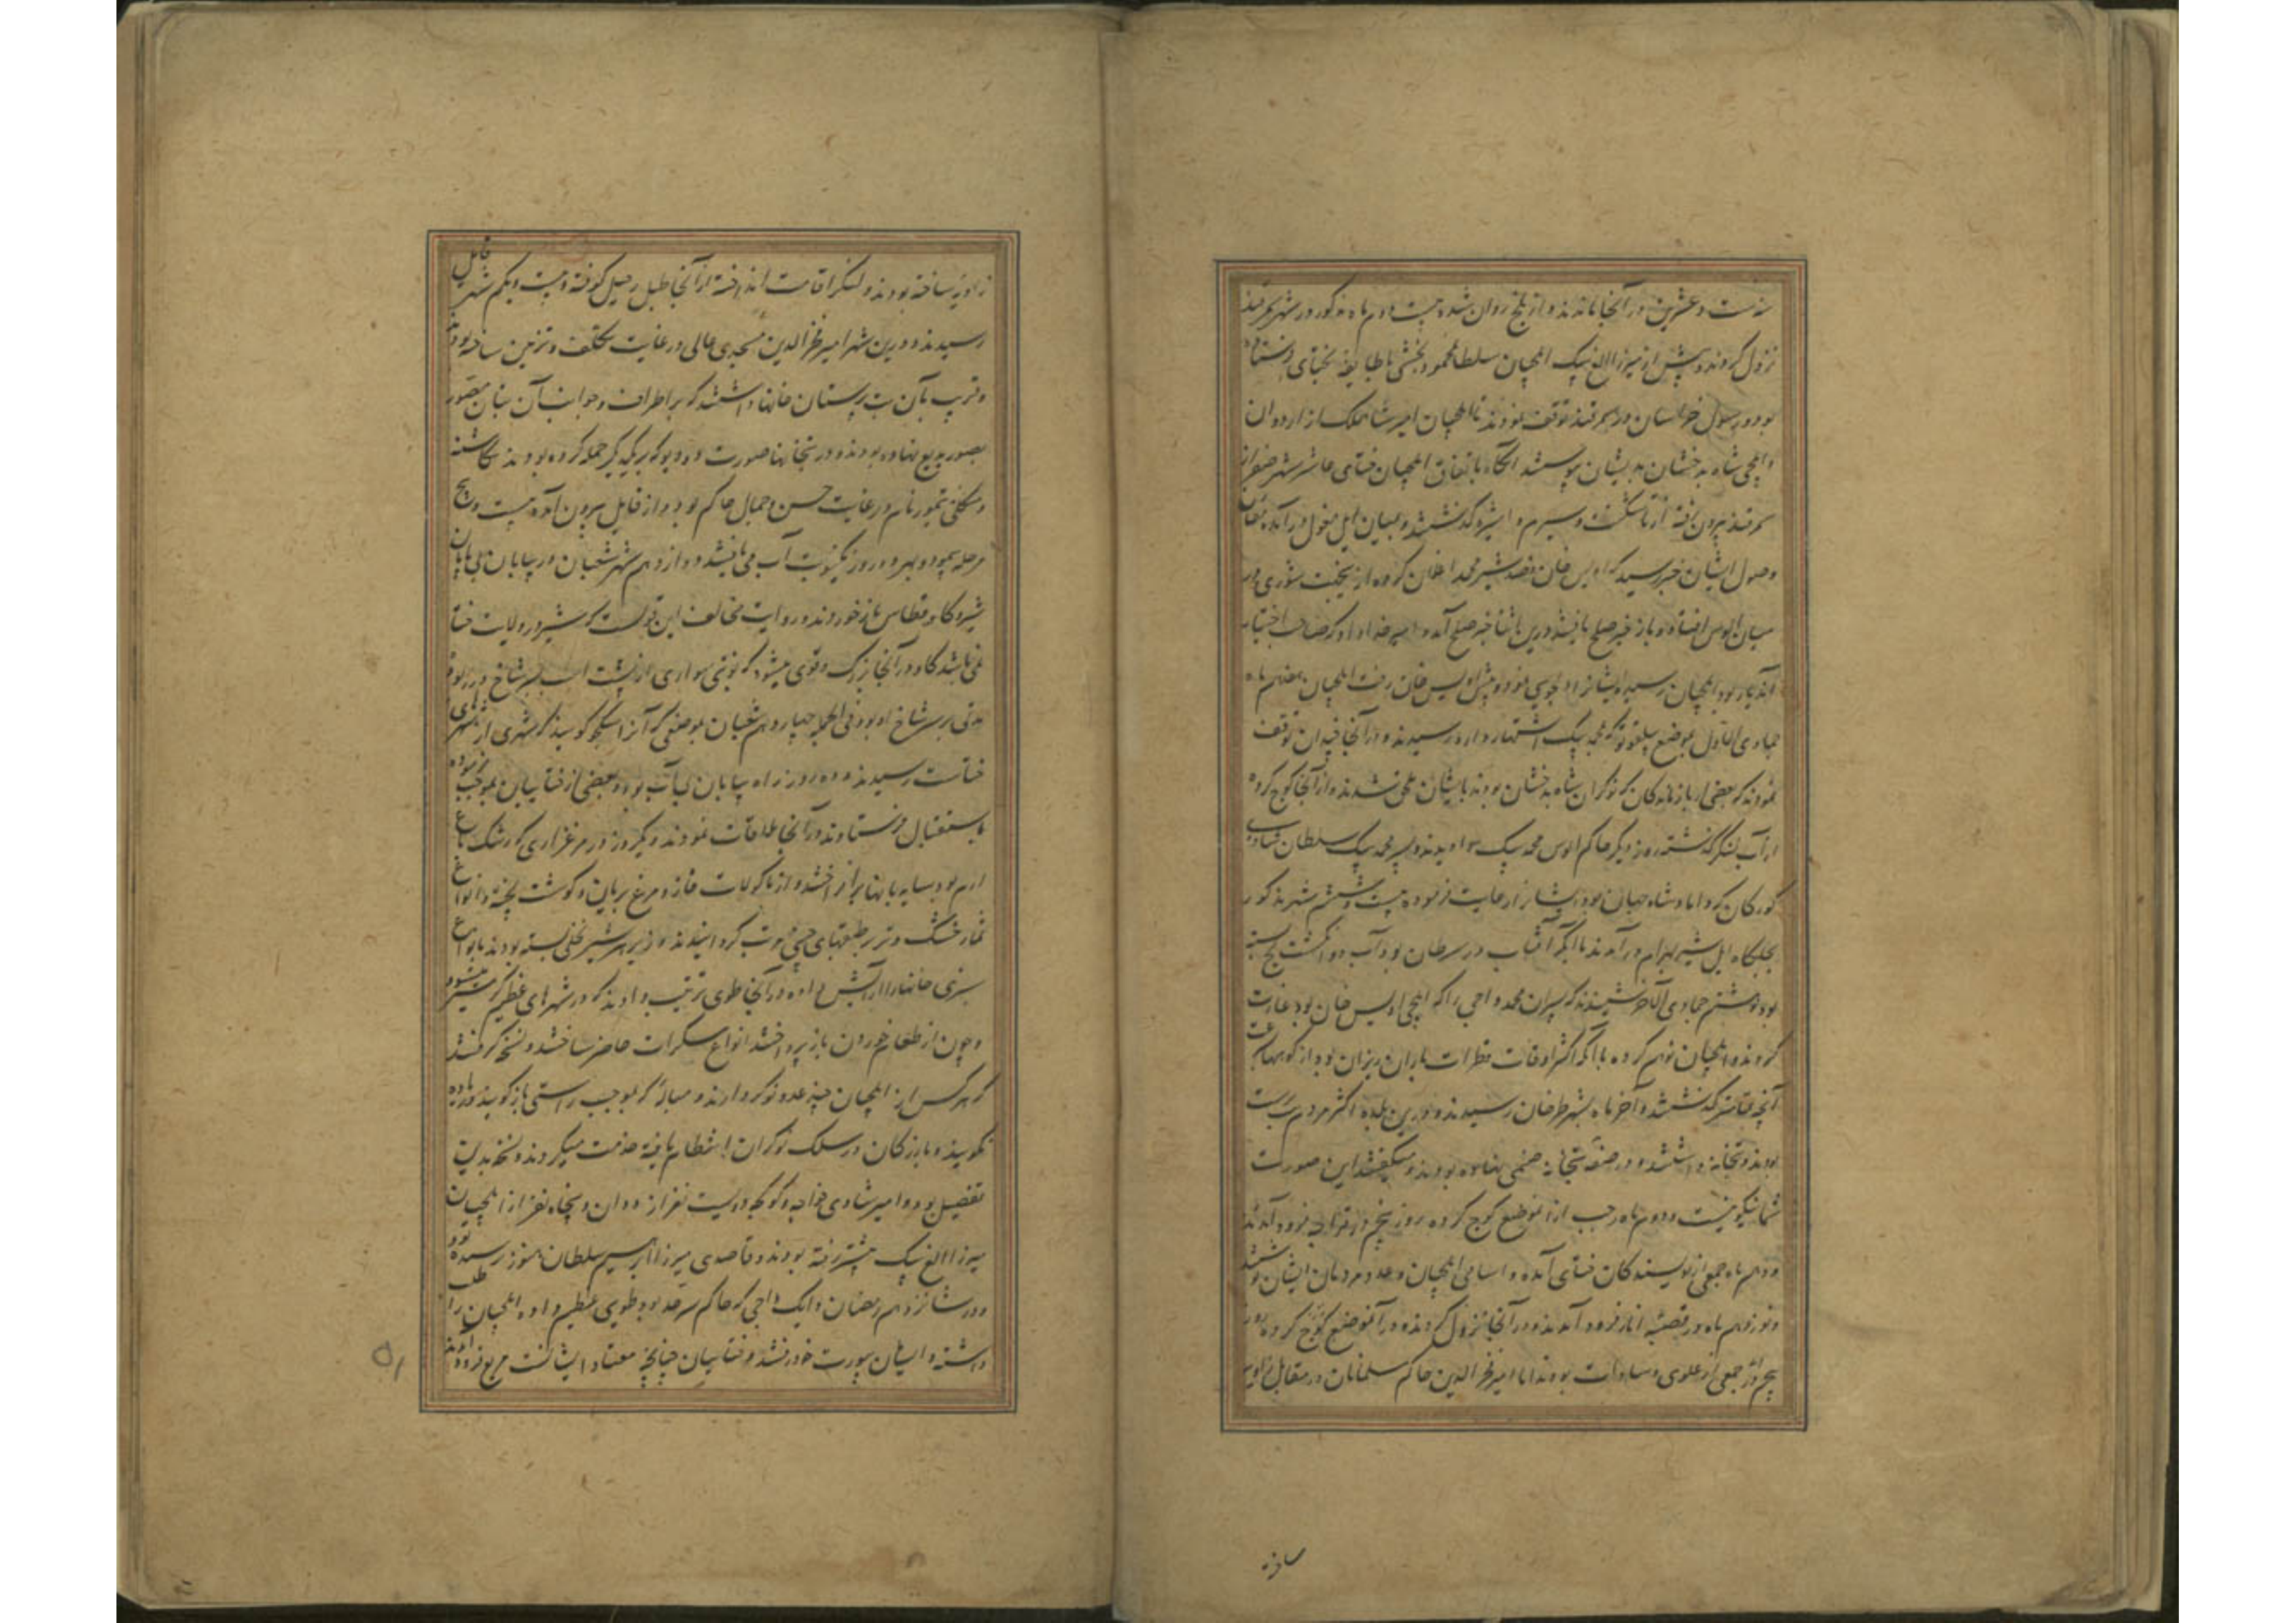 سنه ست و عشرین در آنجا ماندند و از بلخ روان شده بیست دوم ماه مذکور در شهر سمرقند
نزول کردند و پیش از میرزا الغ بیک ایلچیان سلطانمحمود بخشی با طایفه ختای فرستاده
بود و رسول خراسان در سمرقند توقف نمودند تا ایلچیان امیر شاهملک از اردوان
و ایلچی شاه بدخشان بدیشان پیوستند آنگاه باتفاق ایلچیان ختای عاشر شهر صفر از
سمرقند بیرون رفته از تاشکنت و سیرم و اشپره گذشتند و بمیان ایل مغول درآمده مقارن
وصول ایشان خبر رسید که اویس خان قصد شیر محمد اغلان کرده ازینجهت شورری در
میان الوس افتاده و باز خبر صلح یافتند درین اثنا خبر صلح آمده و امیر خداداد که صاحب اختیار
آندیار بود بایلچیان رسیده ایشانرا دلجویی نموده و پیش اویس خان رفت ایلچیان هفدهم ماه
جمادی الاول بموضع بیلغوتو که بمحمد بیک اشتهار دارد رسیدند و در آنجا چندان توقف
نمودند که بعضی از بازماندگان که نوکران شاه بدخشان بودند بایشان ملحق شدند و از آنجا کوچ کرده
از آب لنکر گذشته روز دیگر حاکم الوس محمد بیک را دیدند و پسر محمد بیک سلطان شادی
کورکان که داماد شاه جهان بود ایشانرا رعایت فرموده بیست و هشتم شهر مذکور
بجلگاه ایل شیر بهرام درآمدند با آنکه آفتاب در سرطان بود آب دو انگشت یخ بسته
بود هشتم جمادی الآخر شنیدند که پسران محمد داجی را که ایلچی اویس خان بود غارت
کردند و ایلچیان توهم کرده با آنکه اکثر اوقات قطرات باران ریزان بود از کوههاء
آنچه گذشتند و آخر ماه بشهر طرفان رسیدند و درین بلده اکثر مردم بت پرست
بودند و بتخانه داشتند و در صفه بتخانه صنمی نهاده بودند و میگفتند این صورت
شاکمونیست و دوم ماه رجب ازان موضع کوچ کرده روز پنجم در قراخواجه فرود آمدند
و دهم ماه جمعی از نویسندگان ختای آمده و اسامی ایلچیان و عدد مردمان ایشان نوشتند
و نوزدهم ماه در قصبه اتار فرود آمدند و در آنجا نزول کردند و در آنموضع کوچ کرده
جمعی از علوی و سادات بودند اما امیر فخر الدین حاکم مسلمانان در مقابل
ساخته
زاویه ساخته بودند و لنکر اقامت انداخته از آنجا طبل رحیل کوفته و بیست و یکم شهر قابل
رسیدند و درین شهر امیر فخر الدین مسجدی عالی در غایت تکلف و تزئین ساخته بودند
و قریب بآن بت پرستان خانها داشتند که بر اطراف و جوانب آن بتان مصور
بصور بدیع نهاده بودند و در بتخانها صورت دو دیو که بر یکدیگر حمله کرده بودند نگاشته
و منکلی تیمور نام در غایت حسن و جمال حاکم بود و از قابل بیرون آمده بیست و پنج
مرحله پیمودند بهر دو روز یکنوبت آب می یافتند دوازدهم شهر شعبان در بیابان بی پایان
شیر و گاو قطاس باز خوردند و روایت مخالف این قولست که شیر در ولایت ختا
نمی باشد گاو در آنجا بزرگ و قوی میشود که نوبتی سواری از پشت اسب بسر شاخ در ربوده
مدتی بر سر شاخ او بود فی الجمله چهاردهم شعبان بموضعی که آنرا سکجو گویند که شهری از شهرهای
ختاست رسیدند و ده روز راه بیابان بی آب بود و بعضی از ختاییان بموجب فرموده
باستقبال فرستادند و در آنجا ملاقات نمودند و یکروز در مرغزاری که رشک باغ
ارم بود سایه بانها برافراختند و از ماکولات قاز و مرغ بریان و گوشت پخته و انواع
ثمار خشک و تر بر طبقهای چینی مرتب گردانیدند و از بهر هر شیر نخلی بسته بودند بانواع
سبزی خانها را آرایش داده و در آنجا طوی ترتیب دادند که در شهرهای عظیم کمتر میشود
و چون از طعام خوردن باز پرداختند انواع مسکرات حاضر ساختند و نسخه گرفتند
که هر کس از ایلچیان چند عدد نوکر دارند و مبالغه که بموجب راستی باز گویند و زیاده
نگویند و بازرگان در سلک نوکران انتظام یافته خدمت میکردند و نسخه بدین
تفصیل بود و امیر شادی خواجه و کوکجه دویست نفر از دوان و پنجاه نفر از ایلچیان
میرزا الغ بیک پیشتر رفته بودند و قاصدی میرزا ابراهیم سلطان هنوز نرسیده بود
و در شانزدهم رمضان وانک داجی که حاکم سرحد بود طویی عظیم داده ایلچیان را طلب
داشته و ایشان بیورت خود رفتند و ختاییان چنانچه معتاد ایشانست مربع فرود آمدند
۵۱